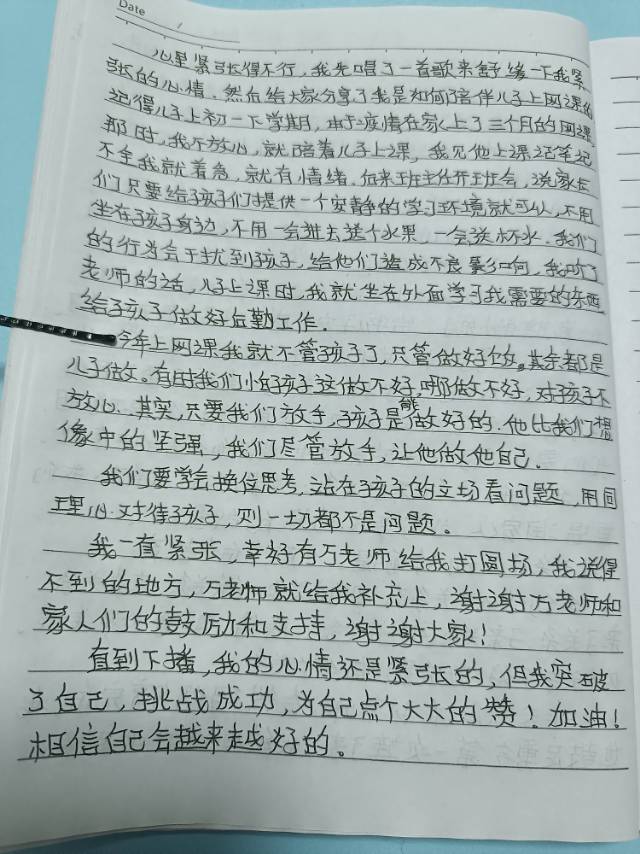 Date
心里紧张得不行，我先唱了一首歌来舒缓一下我紧
张的心情。然后给大家分享了我是如何陪伴儿子上网课的
记得儿子上初一下学期，由于疫情在家上了三个月的网课，
那时，我不放心，就陪着儿子上课，我见他上课笔记记
不全我就着急，就有情绪。后来班主任开班会，说家长
们只要给孩子们提供一个安静的学习环境就可以，不用
坐在孩子身边，不用一会进去送个水果，一会送杯水。我们
的行为会干扰到孩子，给他们造成不良影响，我听了
老师的话，儿子上课时，我就坐在外面学习我需要的东西
给孩子做好后勤工作。
今年上网课我就不管孩子了，只管做好饭。其余都是
儿子做。有时我们怕孩子这做不好，哪做不好，对孩子不
放心。其实，只要我们放手，孩子是能做好的。他比我们想
像中的坚强，我们尽管放手，让他做他自己。
我们要学会换位思考，站在孩子的立场看问题，用同
理心对待孩子，则一切都不是问题。
我一直紧张，幸好有万老师给我打圆场，我说得
不到的地方，万老师就给我补充上，谢谢万老师和
家人们的鼓励和支持，谢谢大家！
直到下播，我的心情还是紧张的，但我突破
了自己，挑战成功，为自己点个大大的赞！加油！
相信自己会越来越好的。